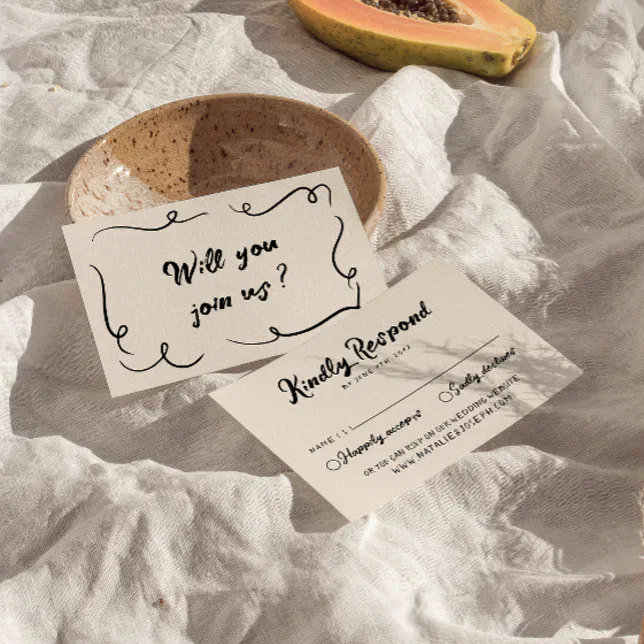 Will you
join us?
Kindly Respond
BY JUNE 7TH, 20
NAME(S)
Happily accepts
Sadly declines
OR YOU CAN RSVP ON OUR WEDDING WEBSITE
WWW.NATALIE&JOSEPH.COM